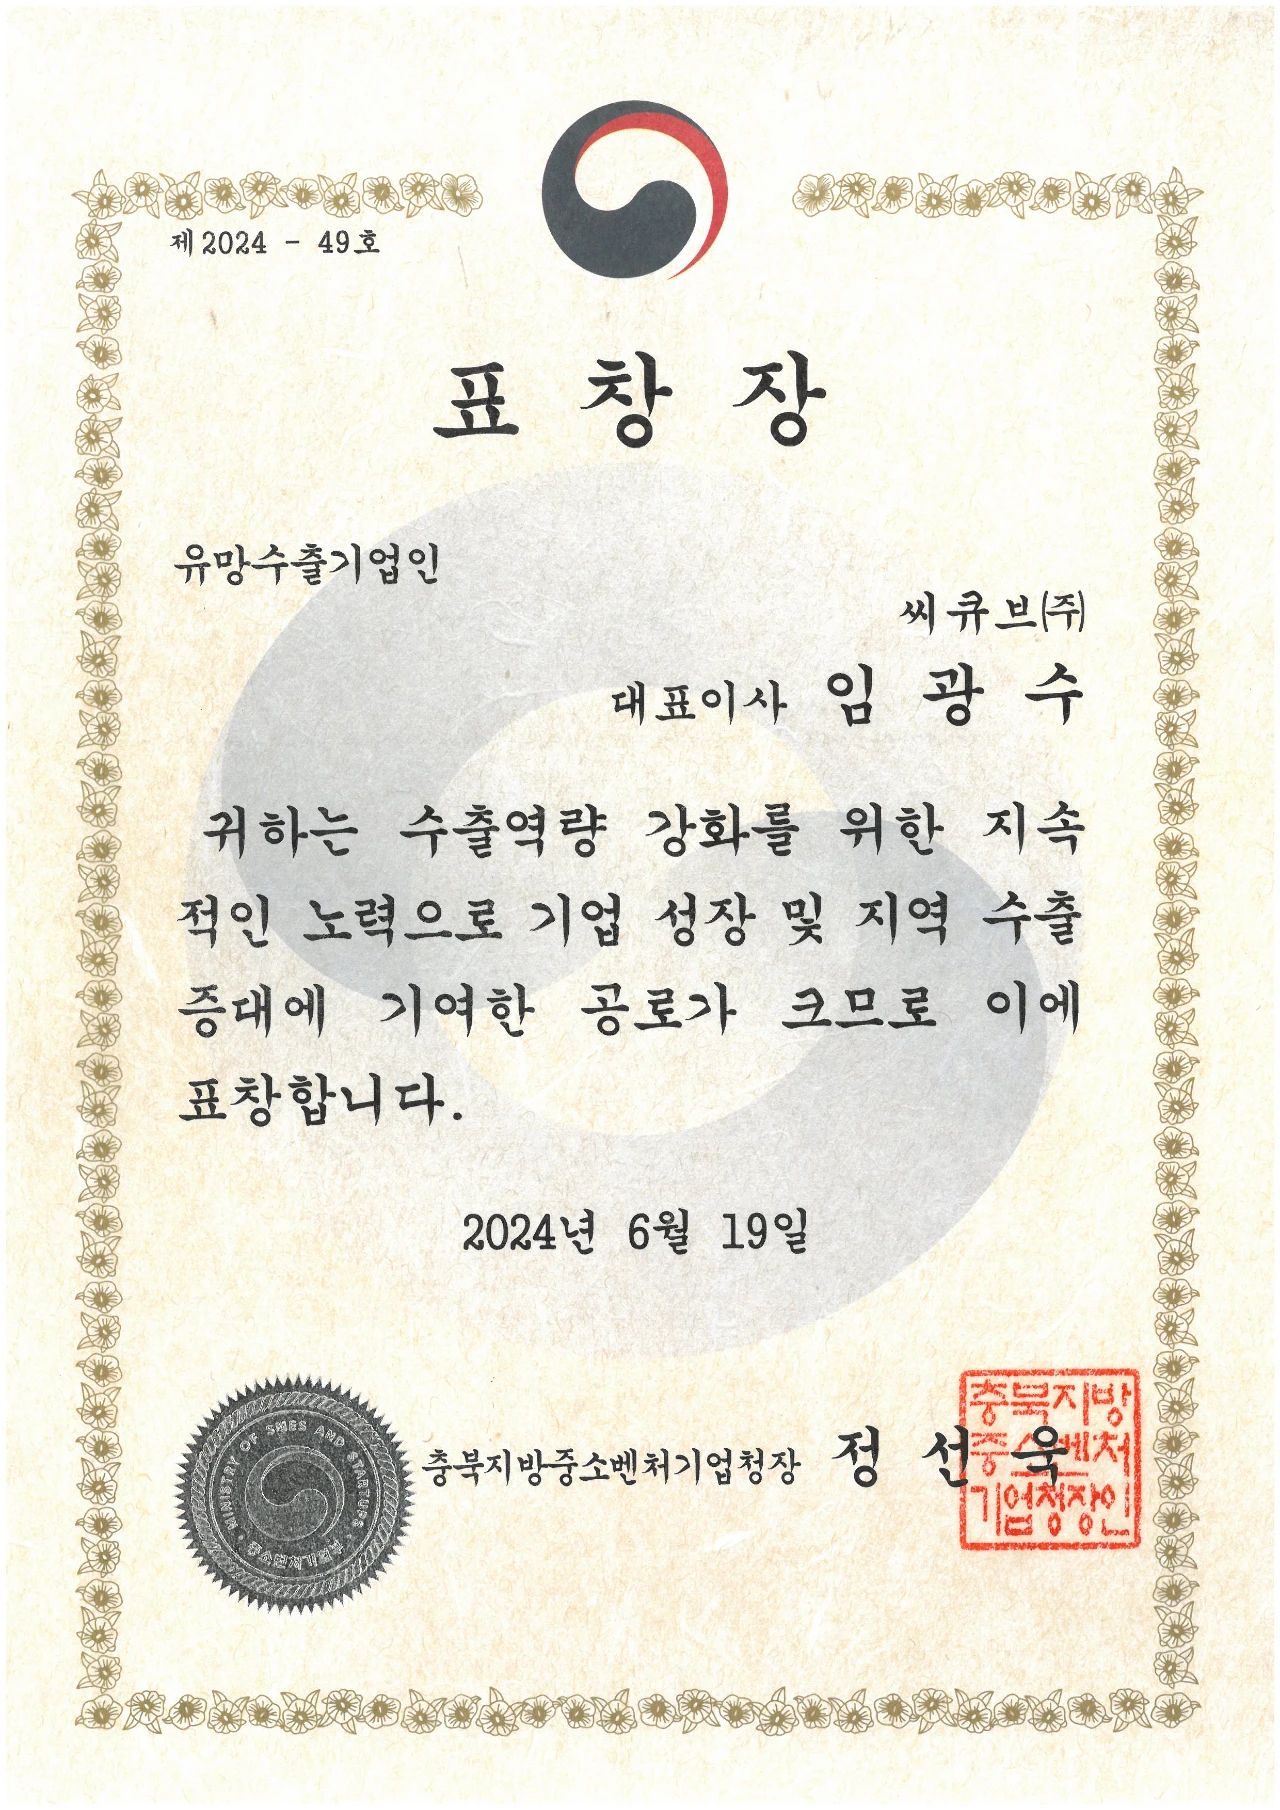 제2024 - 49호
표 창 장
유망수출기업인
씨큐브(주)
대표이사 임 광 수
귀하는 수출역량 강화를 위한 지속
적인 노력으로 기업 성장 및 지역 수출
증대에 기여한 공로가 크므로 이에
표창합니다.
2024년 6월 19일
MINISTRY OF SMES AND STARTUPS
중소벤처기업부
충북지방중소벤처기업청장 정 선 욱
충북지방
중소벤처
기업청장인